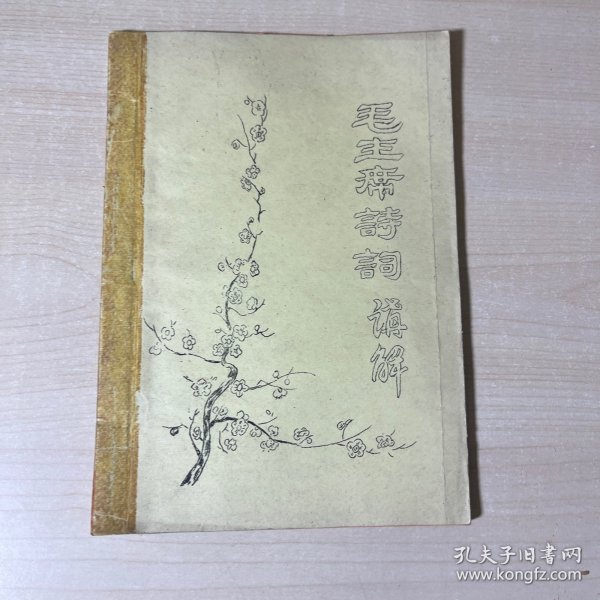 毛主席詩詞 講解
孔夫子旧書网
www.kongfz.com